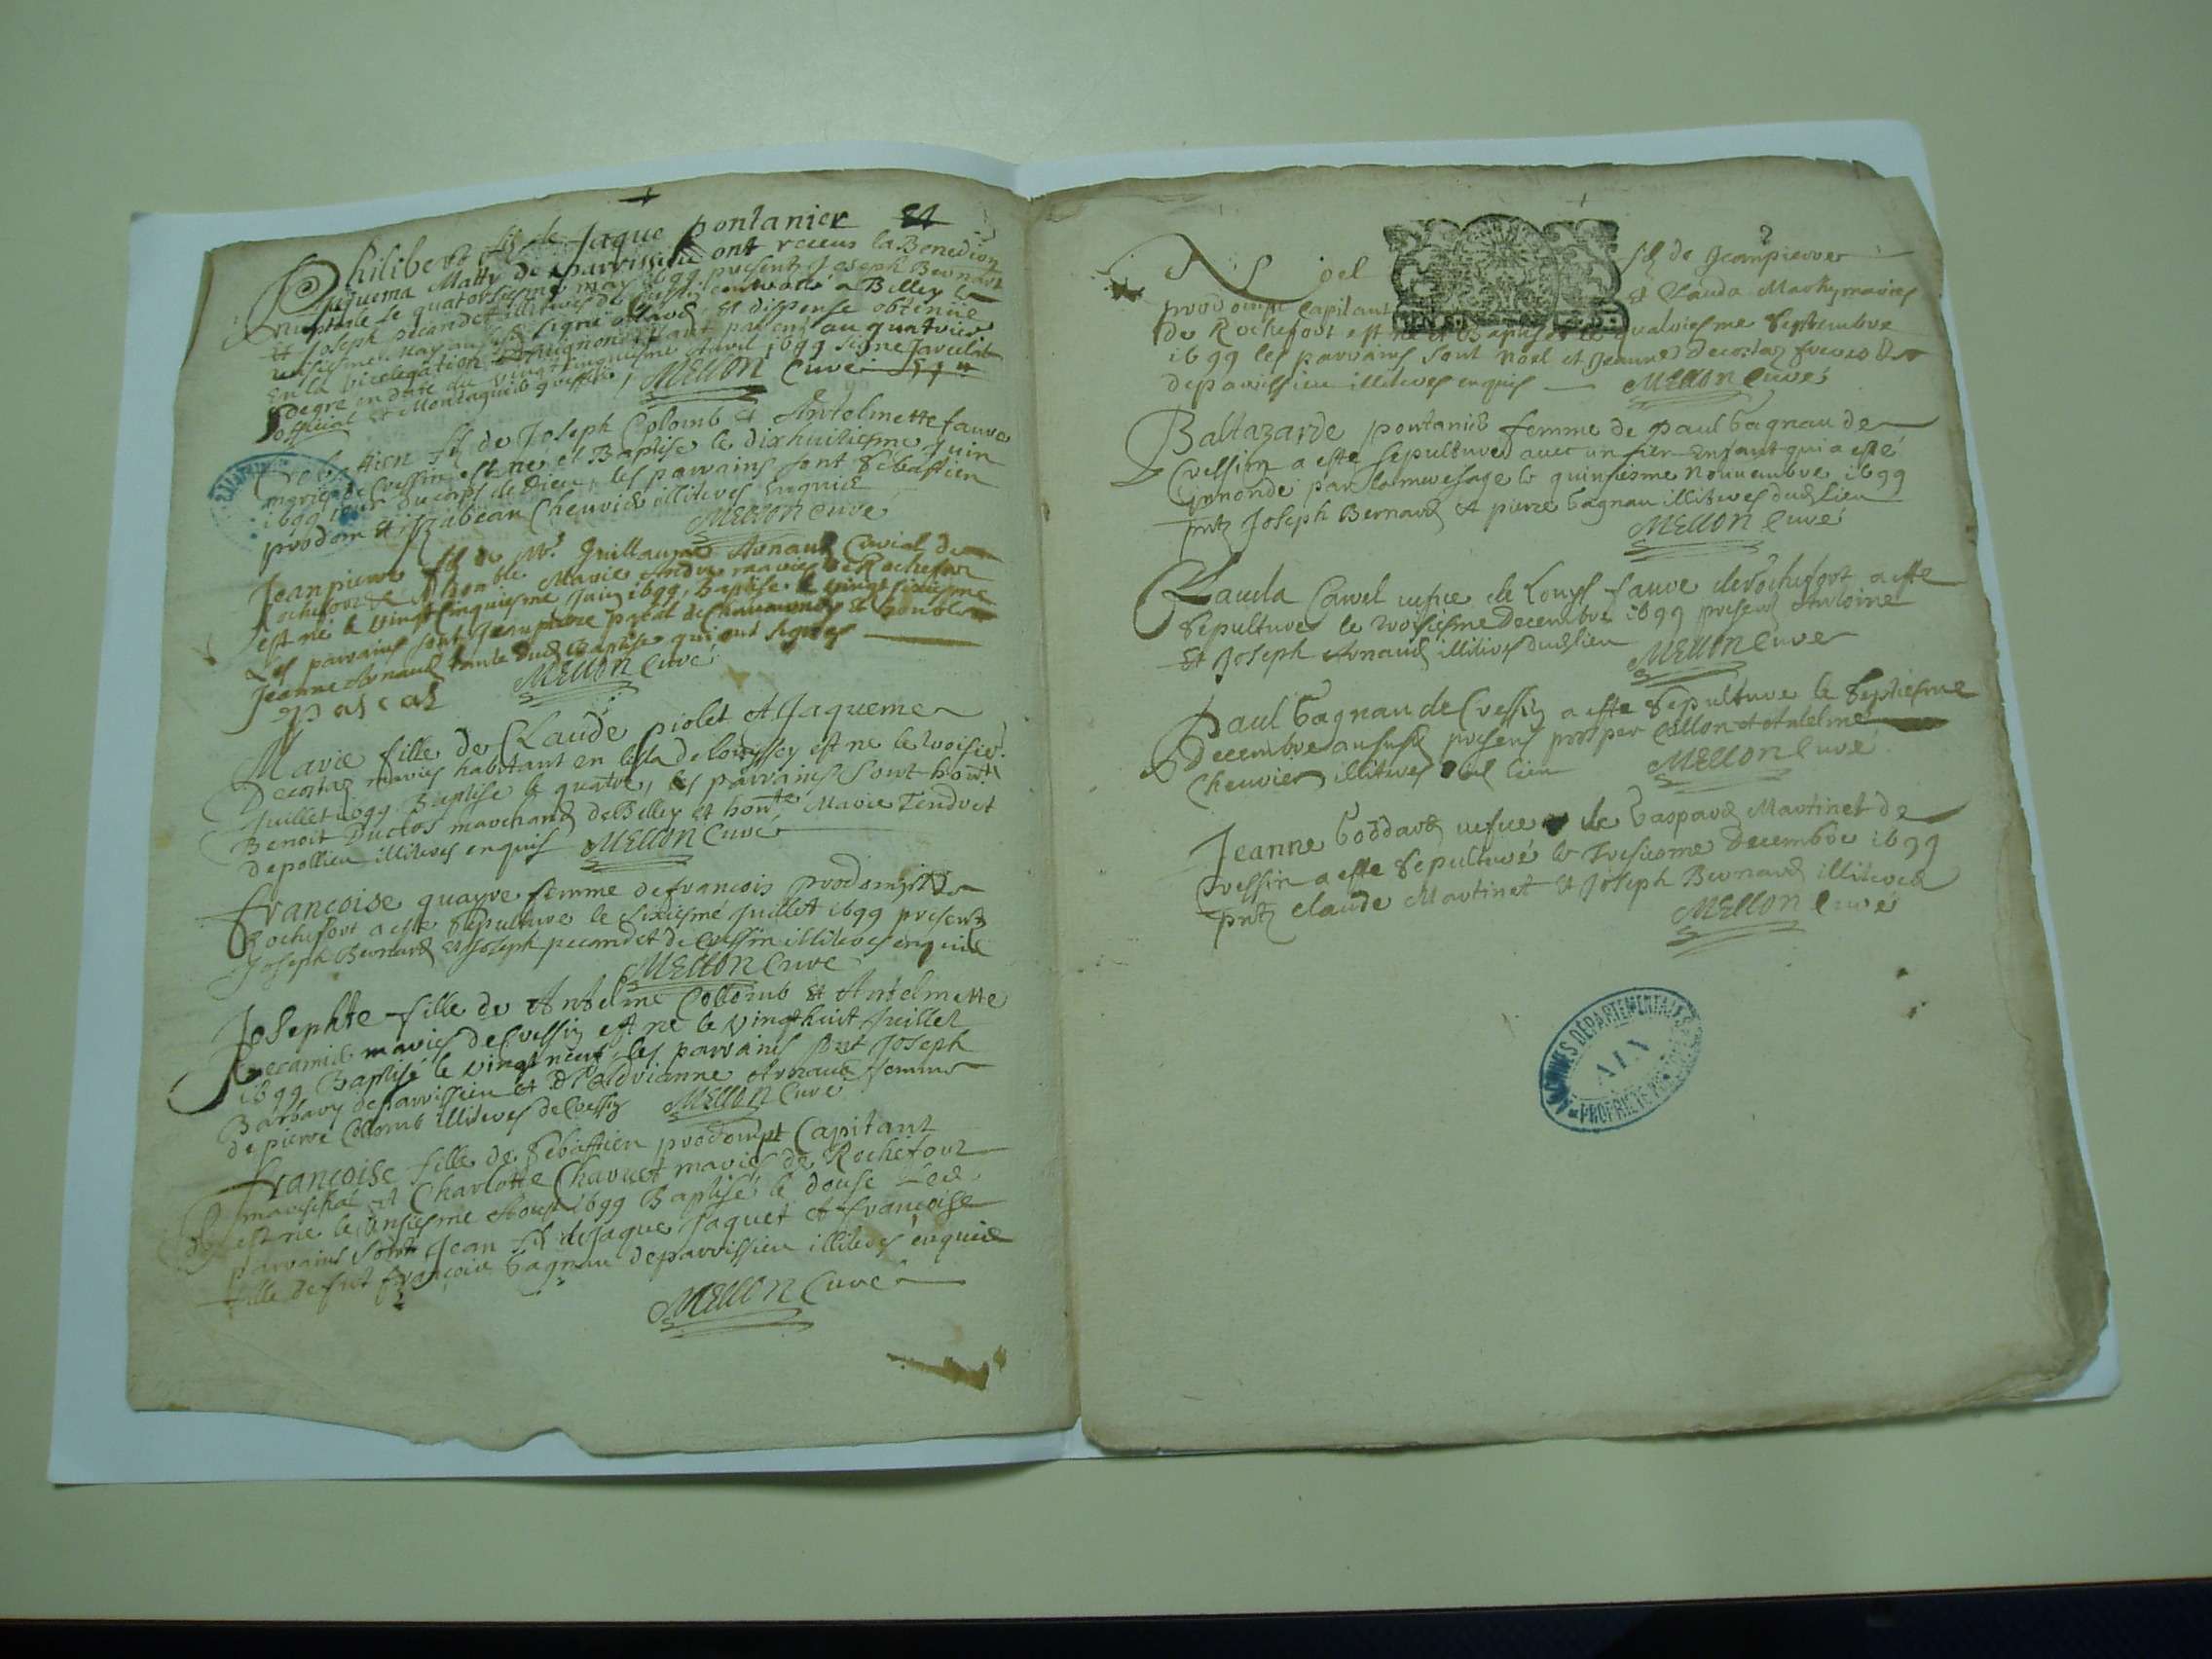 Philibert fils de Jaque pontanier et
Jaquema Matty de parvissieu ont receus la Benediction
nuptiale le quatorsiesme may 1699 presents Joseph Bernard
et Joseph pecandet illiteres de Cressin contracte a Billey le
unsiesme may signé et dispense obtenüe
en la vicelegation avignon estant parens au quatrier
degre en date du vingtcinquiesme Avril 1699 signe
official et Montagu greffier MEllON Curé
Sebastien fils de Joseph Colomb et Antelmette faure
mariés de Cressin est né et Baptise le dixhuitiesme Juin
1699 jour du corps de Dieu, les parrains sont Sebastien
prodom et Izabeau Cheuvier illiteres enquis
MEllON Curé
Jeanpierre fils de Mr. Guillaume Arnaud Curial de
Rochefort et honble Marie Andre maries de Rochefort
est né le vingtcinquiesme Juin 1699 Baptise le vingt sixiesme
Les parrains sont Jeanpierre et honble
Jeanne Arnaud tante dud Baptise qui ont signés
Pascal MEllON Curé
Marie fille de Claude piolet et Jaqueme
Decostaz mariés habitant en lisla de est ne le troisie.
Juillet 1699 Baptise le quatre, les parrains sont hont
Benoit Duclos marchand de Billey et honte Marie Tendret
de pollieu illiteres enquis MEllON Curé
françoise quayre femme de francois prodompt de
Rochefort a este sepulture le sixiesme Juillet 1699 presents
Joseph Bernard et Joseph pecandet de Cressin illiteres enquis
MEllON Curé
Josephte fille de Antelme Collomb et Antelmette
Recamier mariés de Cressin est ne le vingthuit Juillet
1699 Baptisé le vingtneuf, les parrains sont Joseph
Barbary de parvissieu et Adrianne Arnaud femme
de pierre Collomb illiteres de Cressin MEllON Curé
françoise fille de Sebastien prodompt Capitant
mareschal et Charlotte Chavuet mariés de Rochefort
est ne le unsiesme Aoust 1699 Baptisé le douse Les
parrains sont Jean fils de Jaque Jaquet et françoise
fille de fut françois Gagnau de parvissieu illiteres enquis
MEllON Curé
2
Noel fils de Jeanpierre
prodompt Capitant et Clauda Marthy mariés
de Rochefort est né et Baptise le quatriesme Septembre
1699 les parrains sont Noel et Jeanne Decostaz freres de
de parvissieu illiteres enquis MEllON Curé
Baltazarde pontanier femme de paul Gagnau de
Cressin a este sepulturee avec un sien Enfant qui a esté
par la mere sage le quinsiesme Nouuembre 1699
pntz Joseph Bernard et pierre Gagnau illiteres dud lieu
MEllON Curé
Clauda Carrel vefue de Louys faure de Rochefort a este
sepulturee le troisiesme Decembre 1699 presens Antoine
et Joseph Arnaud illiteres dud lieu MEllON Curé
Paul Gagnau de Cressin a este sepulture le Septiesme
Decembre presens prosper Collon et Antelme
Cheuvier illiteres dud lieu MEllON Curé
Jeanne Goddard vefue de Gaspard Martinet de
Cressin a este sepulturé le tresiesme Decembre 1699
pntz Claude Martinet et Joseph Bernard illiteres
MEllON Curé
ARCHIVES DÉPARTEMENTALES
AIN
PROPRIÉTÉ PUBLIQUE